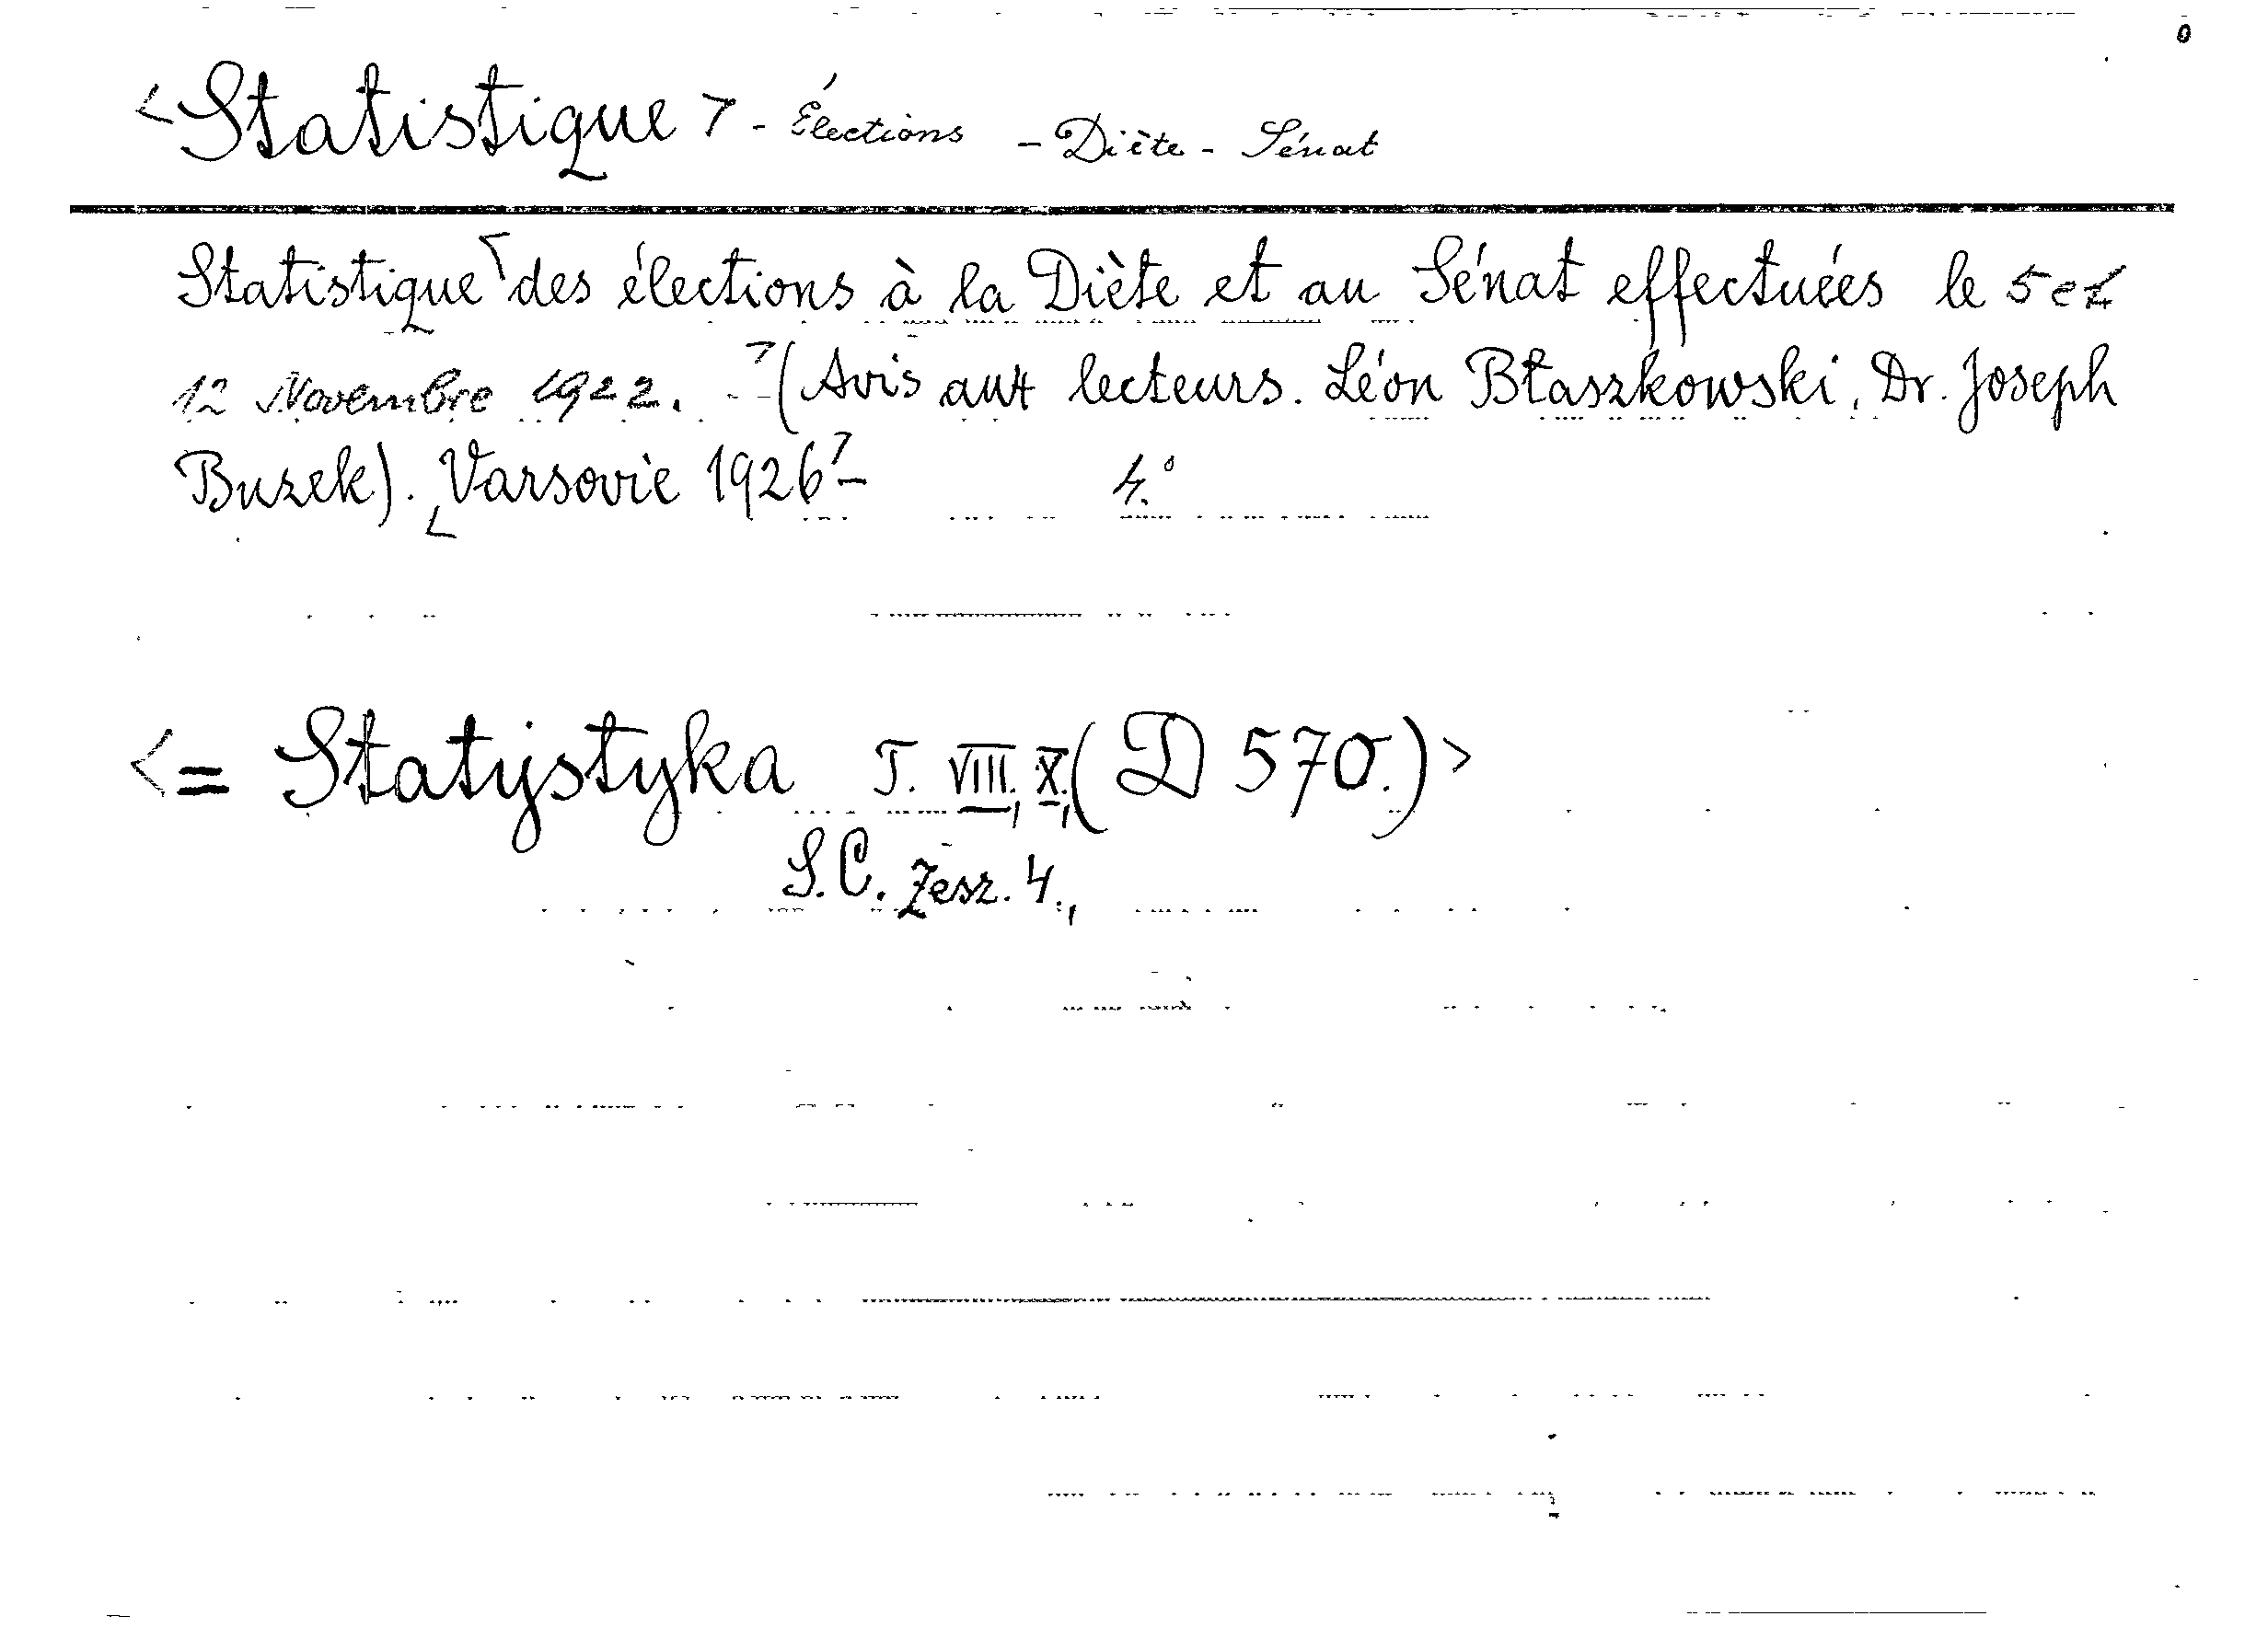 <Statistique> - Élections - Diète - Sénat
Statistique des élections à la Diète et au Sénat effectuées le 5 et
12 Novembre 1922. - (Avis aux lecteurs. Léon Błaszkowski, Dr. Joseph
Buzek). Varsovie 1926 - 4°
<= Statystyka T. VIII, X, (D 570.)>
S.C. Zesz. 4.,